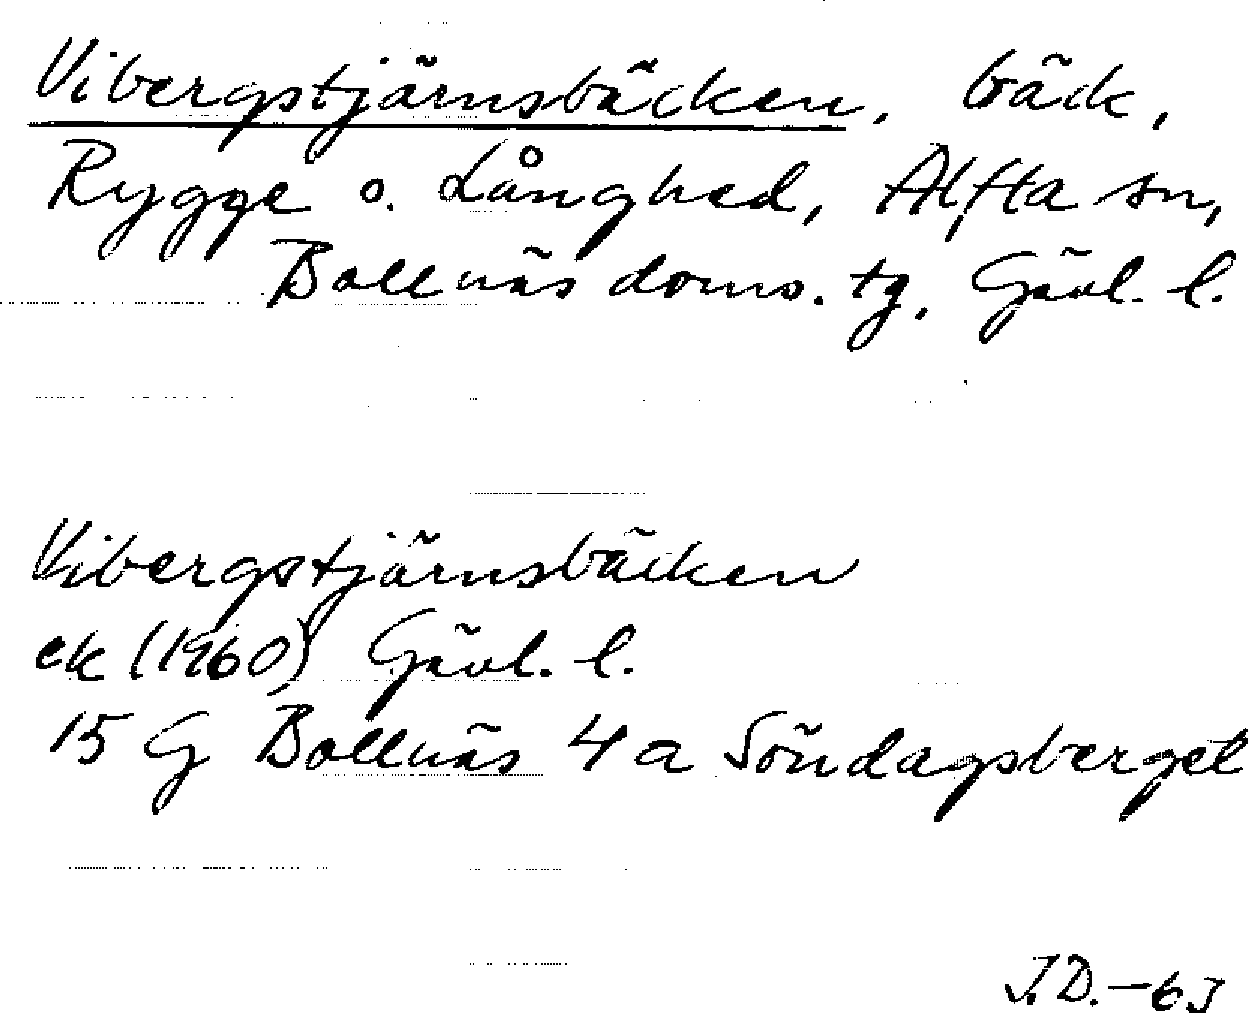 Vibergstjärnsbäcken, bäck,
Rygge o. Långhed, Alfta sn,
Bollnäs doms. tg. Gävl. l.
Vibergstjärnsbäcken
ek (1960) Gävl. l.
15 G Bollnäs 4 a Söndagsberget
J.D.-63